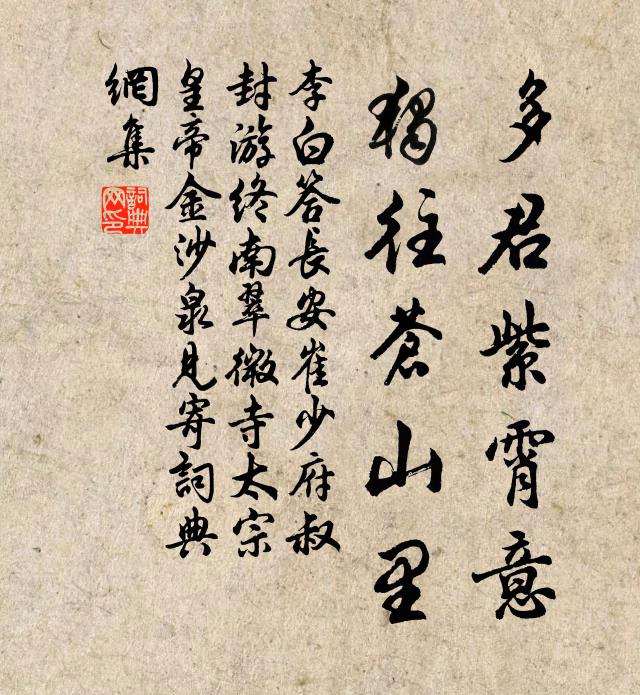 多君紫霄意
獨往蒼山里
李白答長安崔少府叔
封游終南翠微寺太宗
皇帝金沙泉見寄詞典
網集
詞典
网印